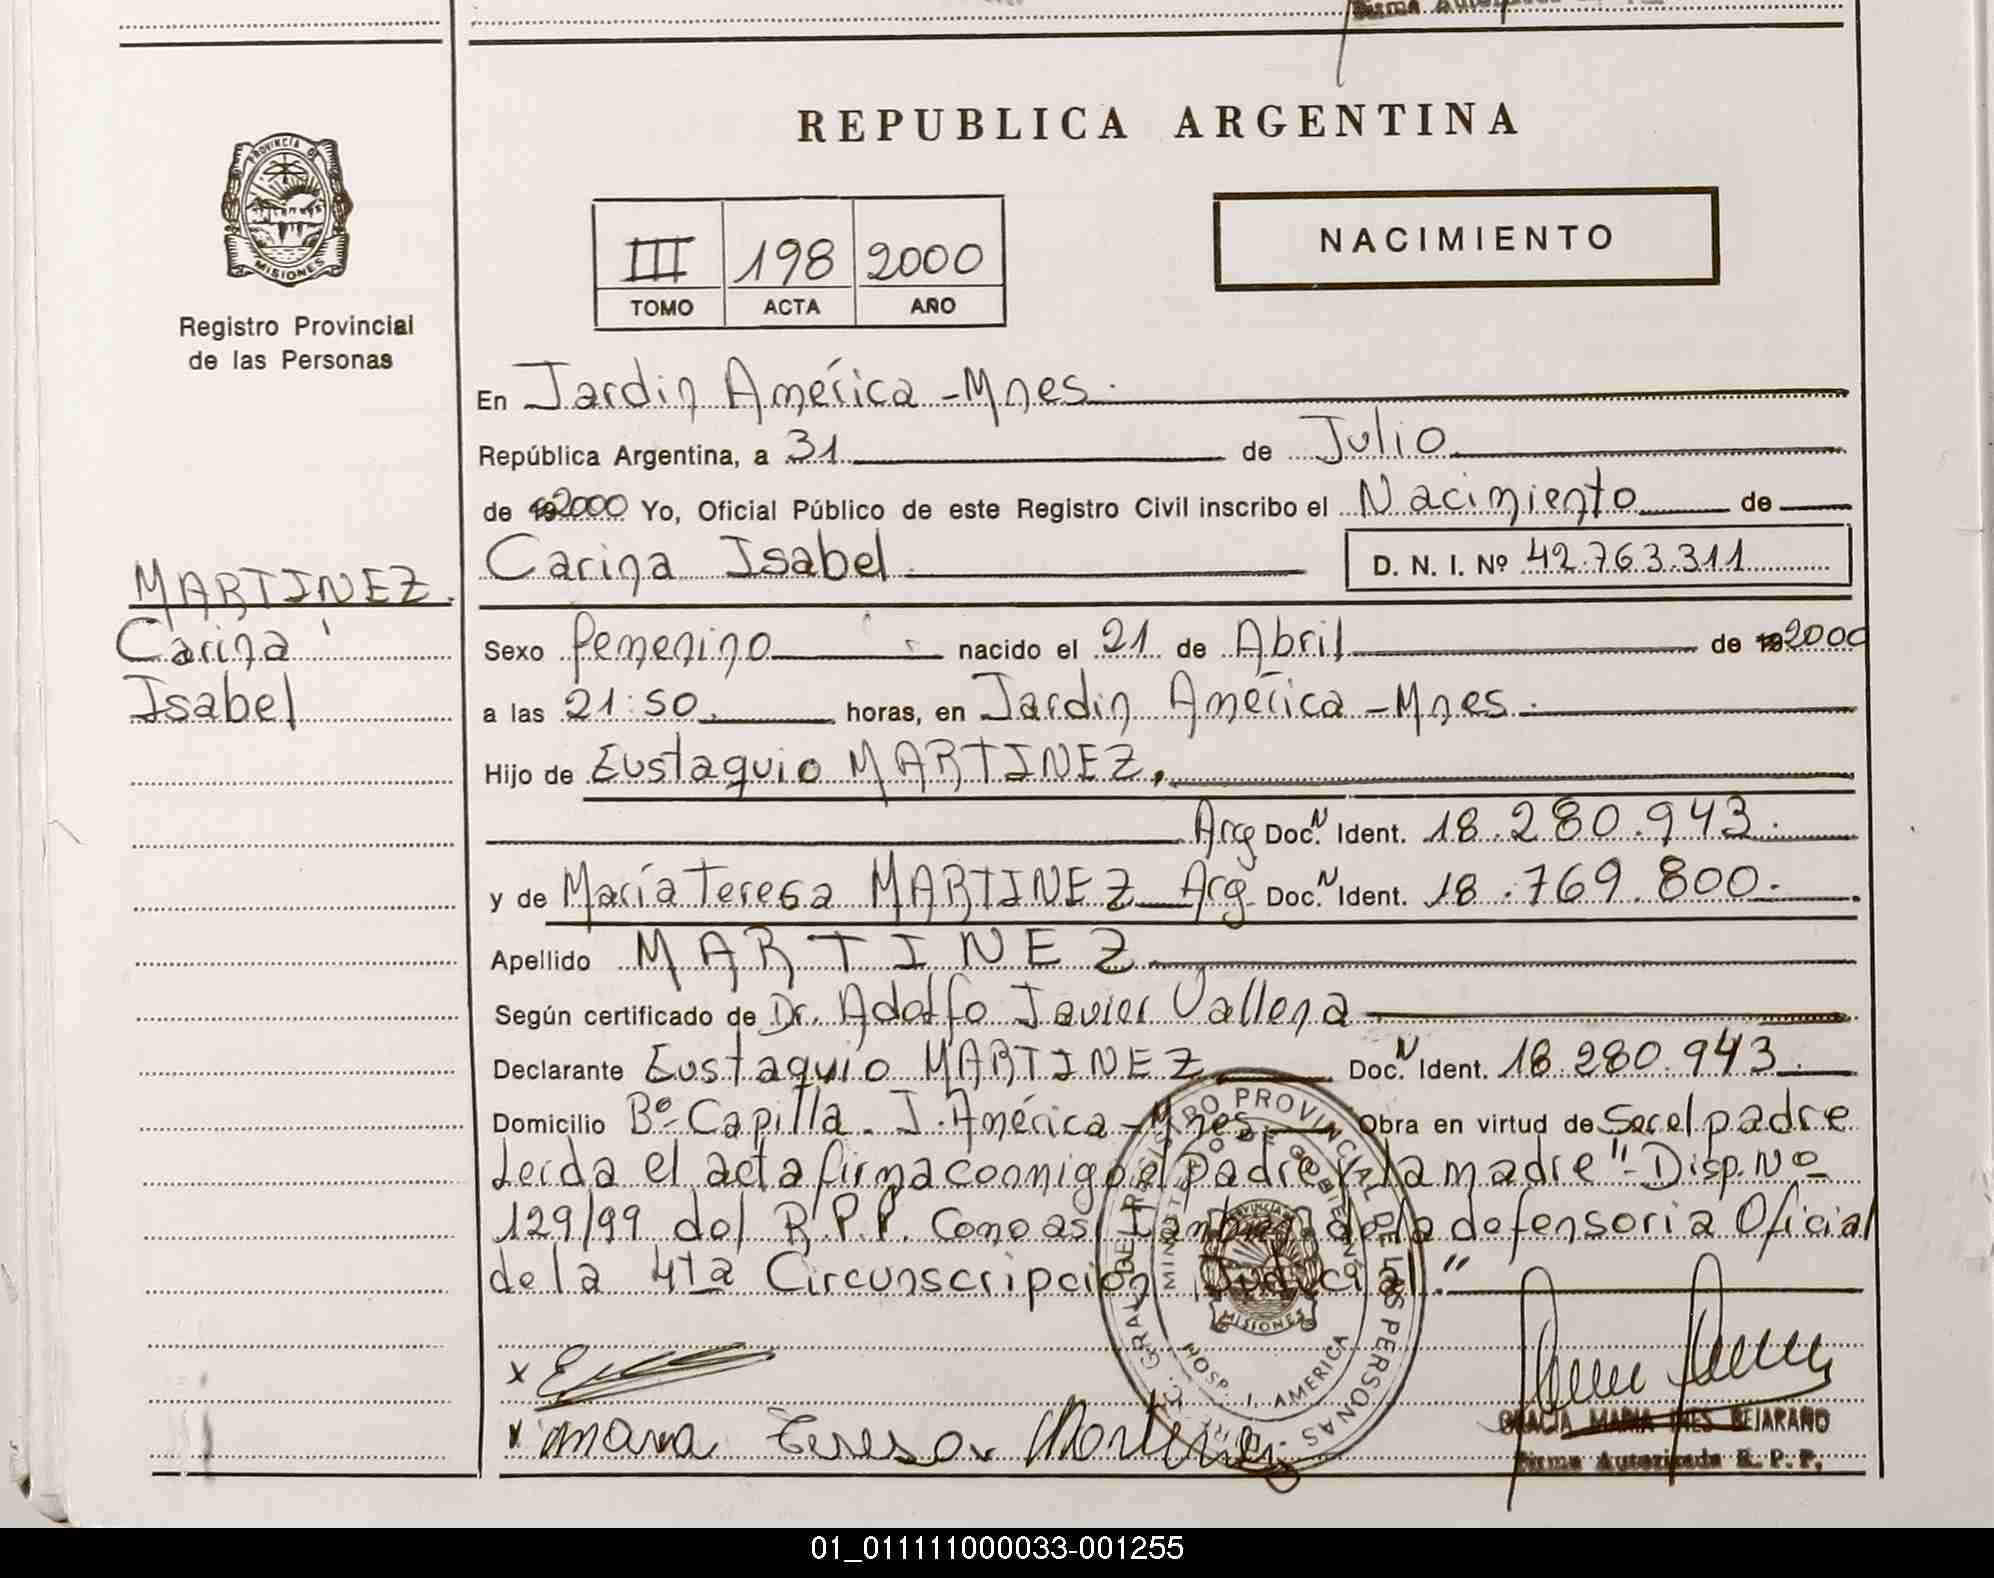 REPUBLICA ARGENTINA
PROVINCIA DE
MISIONES
Registro Provincial
de las Personas
III 198 2000
TOMO ACTA AÑO
NACIMIENTO
En Jardin América - Mnes.
República Argentina, a 31 de Julio
de 19 2000 Yo, Oficial Público de este Registro Civil inscribo el Nacimiento de
Carina Isabel D. N. I. Nº 42.763.311
MARTINEZ.
Carina
Isabel
Sexo femenino nacido el 21 de Abril de 19 2000
a las 21:50. horas, en Jardin América - Mnes.
Hijo de Eustaquio MARTINEZ.
Arg Doc. N Ident. 18.280.943.
y de María Teresa MARTINEZ Arg Doc. N Ident. 18.769.800.
Apellido MARTINEZ
Según certificado de Dr. Adolfo Javier Vallena
Declarante Eustaquio MARTINEZ Doc. N Ident. 18.280.943.
Domicilio Bº Capilla. J. América - Mnes Obra en virtud de Ser el padre
Leida el acta firma conmigo el padre y la madre "- Disp. Nº
129/99 del R.P.P. Como asi tambien de la defensoria Oficial
de la 4ta Circunscripción Judicial."
REGISTRO PROVINCIAL DE LAS PERSONAS
MINISTERIO DE GOBIERNO
MISIONES
HOSP. J. AMERICA
x
x maria teresa Martinez
GRACIA MARIA INES BEJARANO
Firma Autorizada R. P. P.
01_011111000033-001255